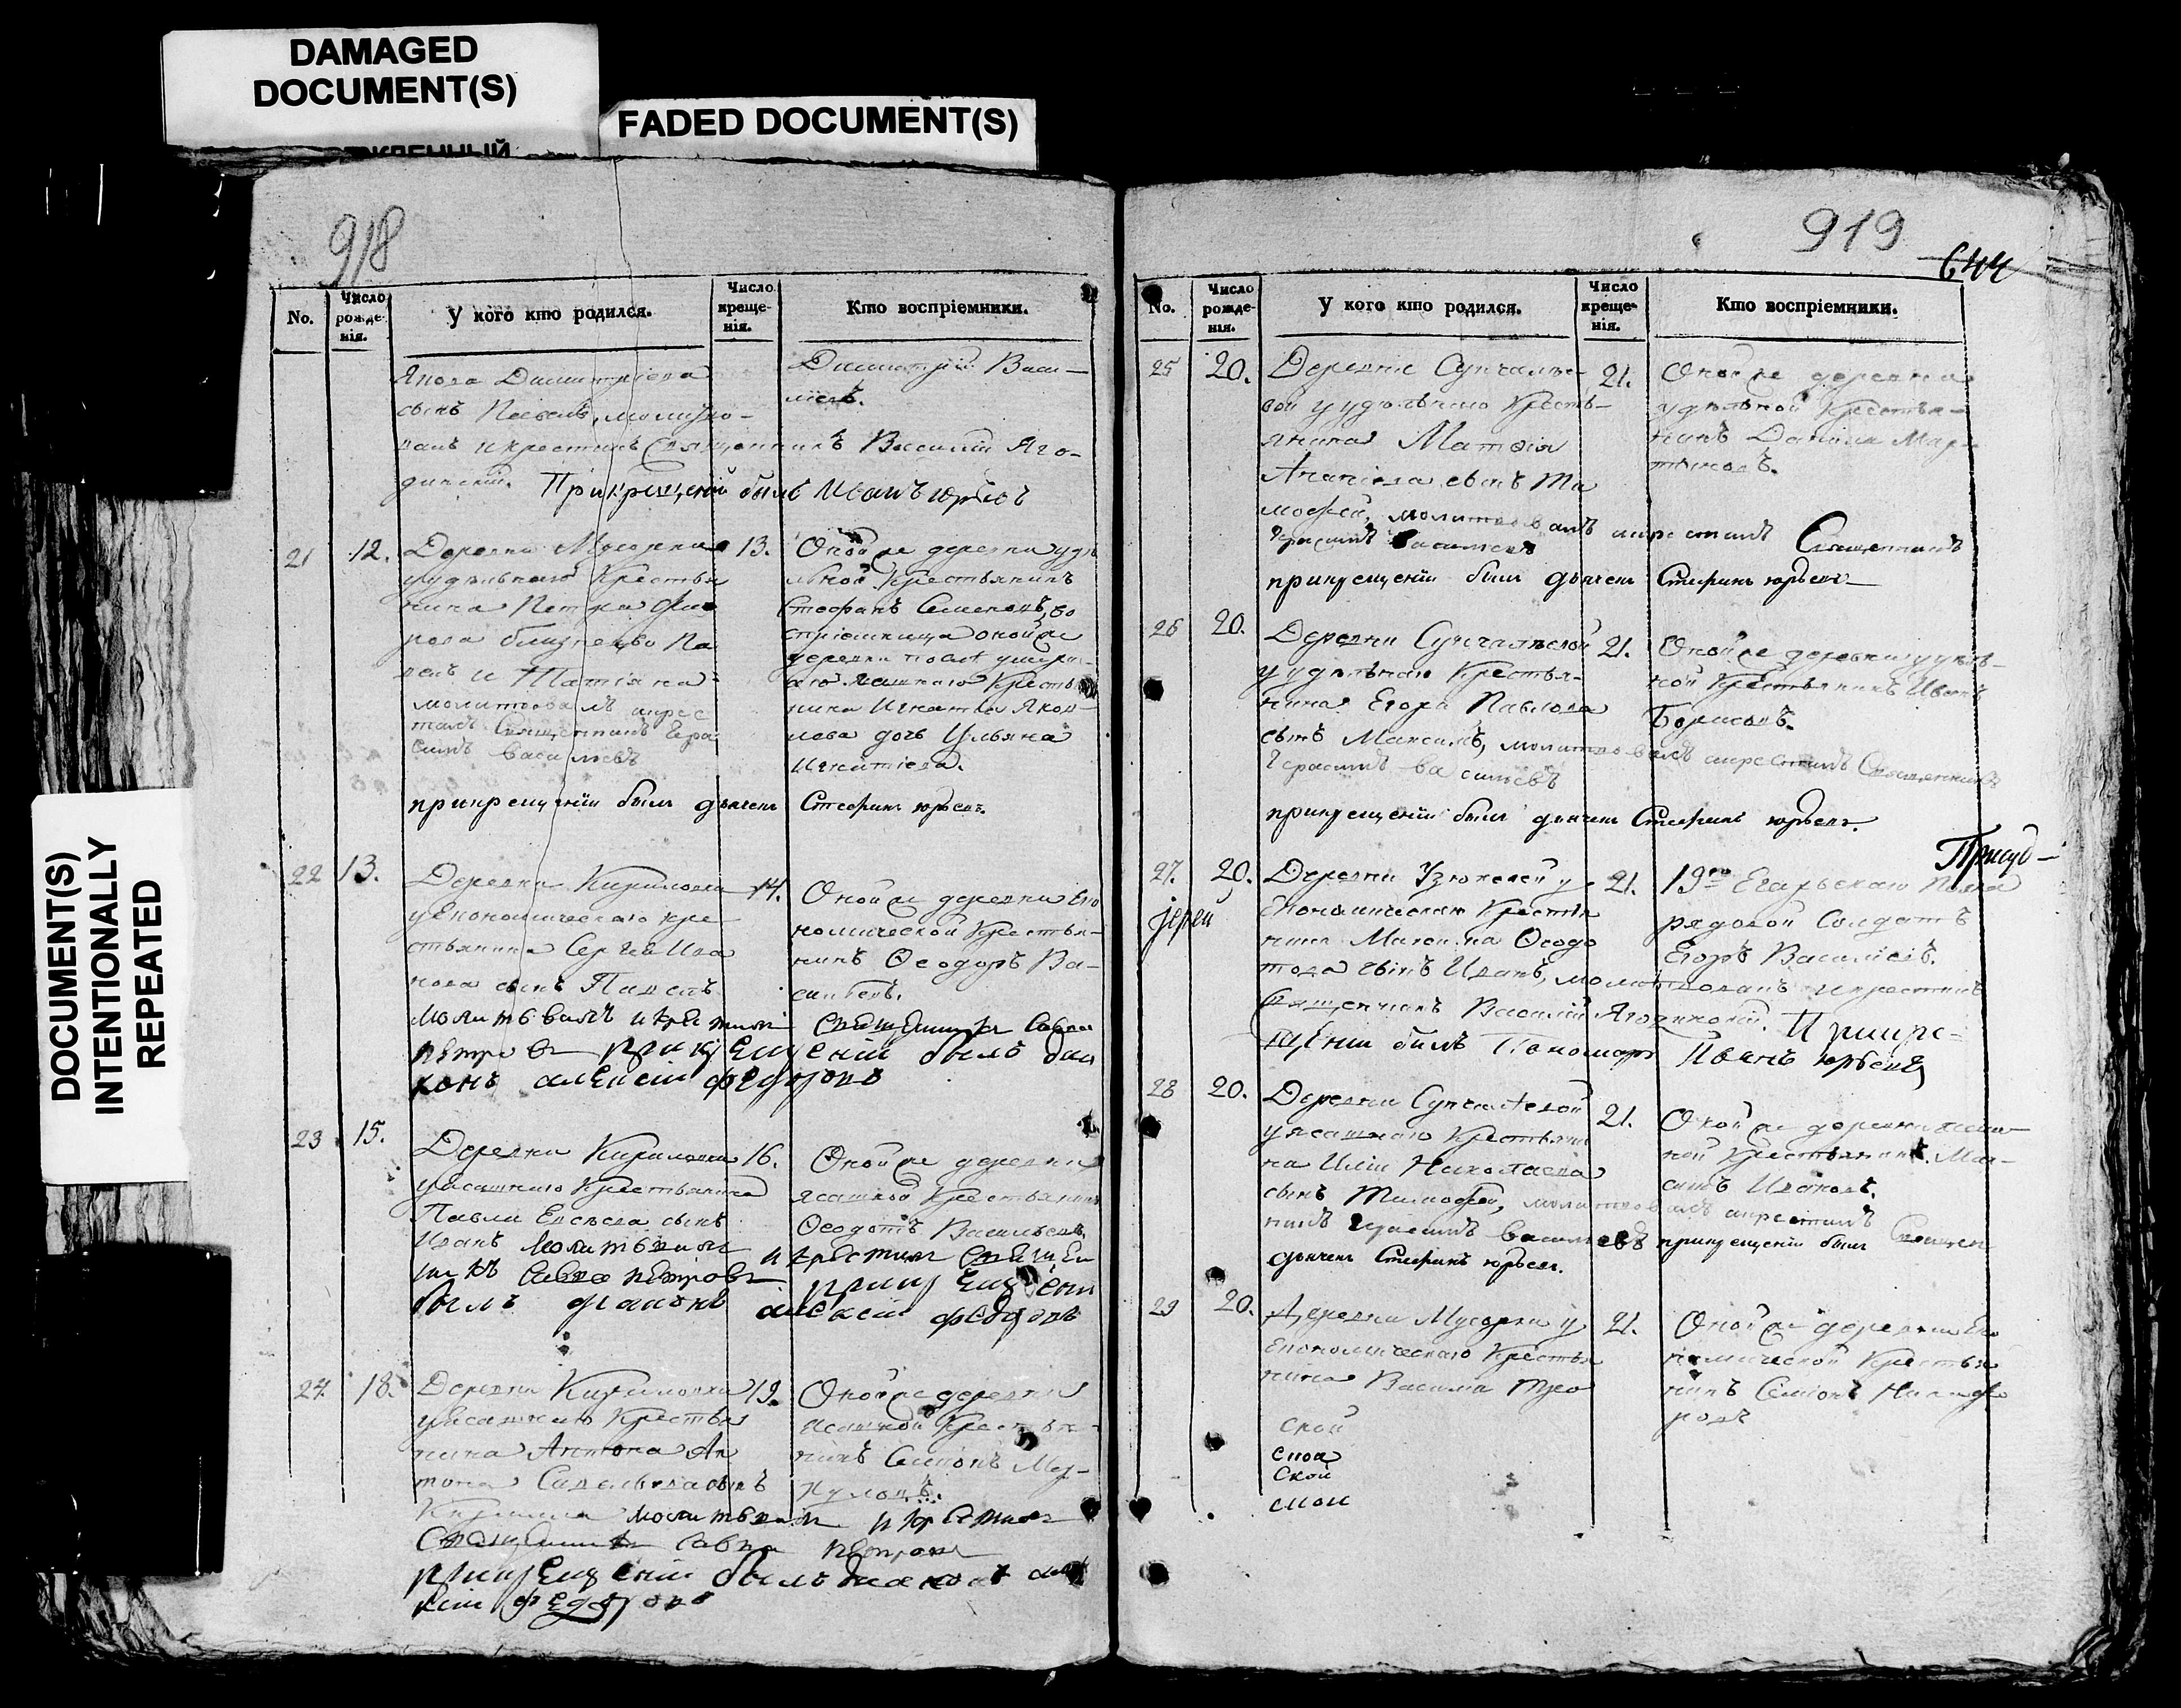 DAMAGED
DOCUMENT(S)
FADED DOCUMENT(S)
DOCUMENT(S)
INTENTIONALLY
REPEATED
918
No.
Число рожде-нія.
У кого кто родился.
Число креще-нія.
Кто воспріемники.
Якова Димитріева
сынъ Павелъ, молитво-
валъ и крестилъ Священникъ Василій Яго-
динскій. При крещеніи былъ Иванъ Юрьевъ
Димитрій Васи-
льевъ.
21 12.
Деревни Мусорки
у удѣльнаго Крестья
нина Петра
близнецы Па
велъ и Татіяна
молитвовалъ и крес
тилъ Священникъ Гера
симъ Васильевъ
13.
Оной же деревни удѣ
льной Крестьянинъ
Стефанъ Семеновъ, во
спріемница оной же
деревни
ясашнаго Крестья
нина Игнатія Яков-
лева дочь Ульяна
Игнатіева.
при крещеніи былъ дьячекъ Стефанъ Юрьевъ.
22 13.
Деревни Кириловки
у Економическаго кре
стьянина Сергія Ива
нова сынъ Павелъ
14.
Оной же деревни Еко
номической Крестья-
нинъ Ѳеодоръ Ва-
сильевъ.
молитвовалъ и крестилъ священникъ Савва
петровъ при крещеніи былъ дья
конъ алексій федоровъ
23 15.
Деревни Кириловки
у ясашнаго Крестьянина
Павла Евсѣева сынъ
Иванъ молитвовалъ и крестилъ священ
никъ Савва петровъ при крещеніи
былъ діаконъ алексій федоровъ
16.
Оной же деревни
ясашной Крестьянинъ
Ѳеодотъ Васильевъ.
24. 18.
Деревни Кириловки
у ясашнаго Крестья
нина Антона Ан
тона Савельева сынъ
Кирилла молитвовалъ и крестилъ
Священникъ Савва петровъ
при крещеніи былъ діаконъ алек
сій федоровъ
19.
Оной же деревни
ясашной Крестья-
нинъ Симіонъ
919
644
No.
Число рожде-нія.
У кого кто родился.
Число креще-нія.
Кто воспріемники.
25 20.
Деревни Сунчалѣе-
вой у удѣльнаго Кресть-
янина Матѳія
Ананіева сынъ Ти
мофей, молитвовалъ и крестилъ Священникъ
Герасимъ Васильевъ
при крещеніи былъ дьячекъ Стефанъ Юрьевъ
21.
Оной же деревни
удѣльной Крестья-
нинъ Данила Мар-
тыновъ.
26 20.
Деревни Сунчалѣевой
у удѣльнаго Крестья-
нина Егора Павлова
сынъ Максимъ, молитвовалъ и крестилъ Священникъ
Герасимъ Васильевъ
при крещеніи былъ дьячекъ Стефанъ Юрьевъ.
21.
Оной же деревни удѣль-
ной Крестьянинъ Иванъ
Борисовъ.
27. 20.
Іерей
Деревни Узюковой у
Економическаго Крестья
нина Максима Ѳеодо
това сынъ Иванъ, молитвовалъ и крестилъ
Священникъ Василій Ягодинскій. При кре-
щеніи былъ Пономарь Иванъ Юрьевъ
21.
19го Егарьскаго Полка
рядовой Солдатъ
Егоръ Васильевъ.
28 20.
Деревни Сунчалѣевой
у ясашнаго Крестьяни
на Иліи Николаева
сынъ Тимофей, молитвовалъ и крестилъ Священ
никъ Герасимъ Васильевъ при крещеніи былъ
дьячекъ Стефанъ Юрьевъ.
21.
Оной же деревни ясаш-
ной Крестьянинъ Мак-
симъ Ивановъ.
29 20.
Деревни Мусорки у
Економическаго Крестья
нина Василія
21.
Оной же деревни Еко
номической Крестья
нинъ Симіонъ Никифо
ровъ
ской
ской